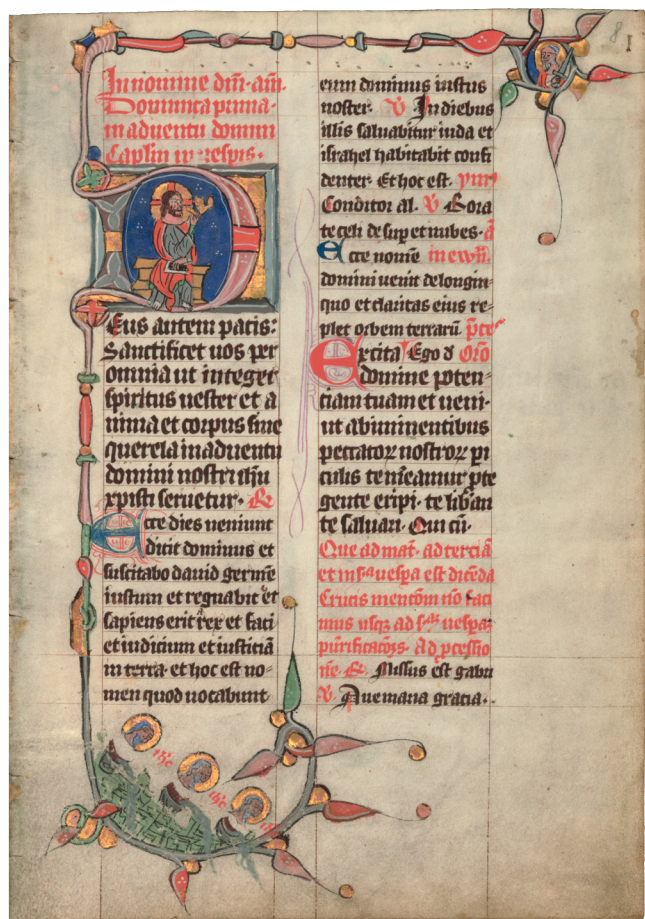 In nomine dm̄i am̄.
Dominica prima
in aduentu domini
Caplm̄ in vespis.
Deus autem pacis:
Sanctificet uos per
omnia ut integer
spiritus uester et a
nima et corpus sine
querela in aduentu
domini nostri ihū
xpisti seruetur. R̄
Ecce dies ueniunt
dicit dominus et
suscitabo dauid germē
iustum et regnabit et
sapiens erit rex et faci
et iudicium et iusticiā
in terra et hoc est no
men quod uocabunt
eum dominus iustus
noster. V In diebus
illis saluabitur iuda et
israhel habitabit confi
denter. Et hoc est. ym̄
Conditor al. V Rora
te celi desuꝑ et nubes. ā
Ecce nomē in ewāḡ.
domini uenit de longin
quo et claritas eius re
plet orbem terrarū
Excita Ego d Orō
domine poten
ciam tuam et ueni
ut ab iminentibus
peccatoꝝ nostroꝝ pi
culis te m̄eamur ꝓte
gente eripi. te libān
te saluari. Qui cū.
Que ad mat. ad terciā
et in sā uesꝑa est dicēda
Crucis mencōm nō faci
mus usqꝫ ad sās uesꝑas
purificacōis. Ad ꝓcessio
nē. R̄. Missus est gabri
V. Aue maria gracia.
ihc
ihc
81